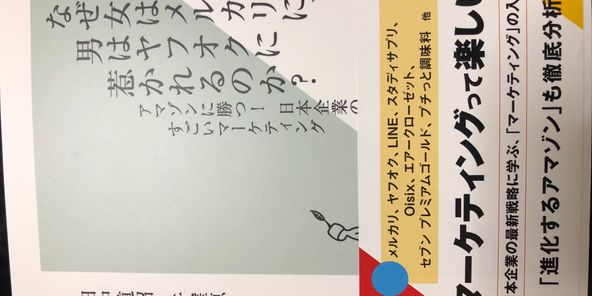 なぜ女はメルカリに、
男はヤフオクに
惹かれるのか?
アマゾンに勝つ! 日本企業の
すごいマーケティング
メルカリ、ヤフオク、LINE、スタディサプリ、
Oisix、エアークローゼット、
セブン プレミアムゴールド、プチっと調味料 他
マーケティングって楽しい
本企業の最新戦略に学ぶ、「マーケティング」の入
「進化するアマゾン」も徹底分析